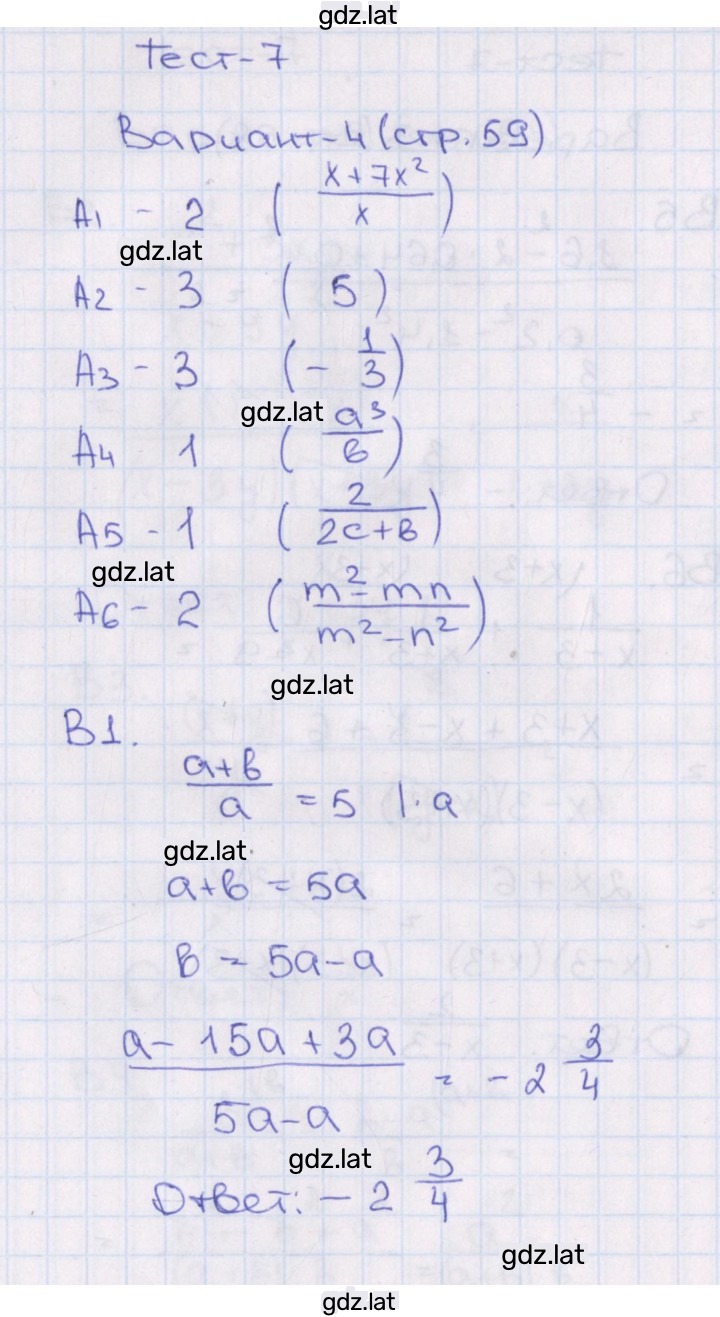 gdz.lat
Тест-7
Вариант-4 (стр. 59)
A1 - 2 ( (x + 7x²)/x )
gdz.lat
A2 - 3 ( 5 )
A3 - 3 ( - 1/3 )
gdz.lat
A4 1 ( a³/в )
A5 - 1 ( 2/(2c+в) )
gdz.lat
A6 - 2 ( (m² - mn)/(m² - n²) )
gdz.lat
B1.
(a+в)/a = 5 |·a
gdz.lat
a+в = 5a
в = 5a - a
(a - 15a + 3a)/(5a - a) = - 2 3/4
gdz.lat
Ответ: - 2 3/4
gdz.lat
gdz.lat